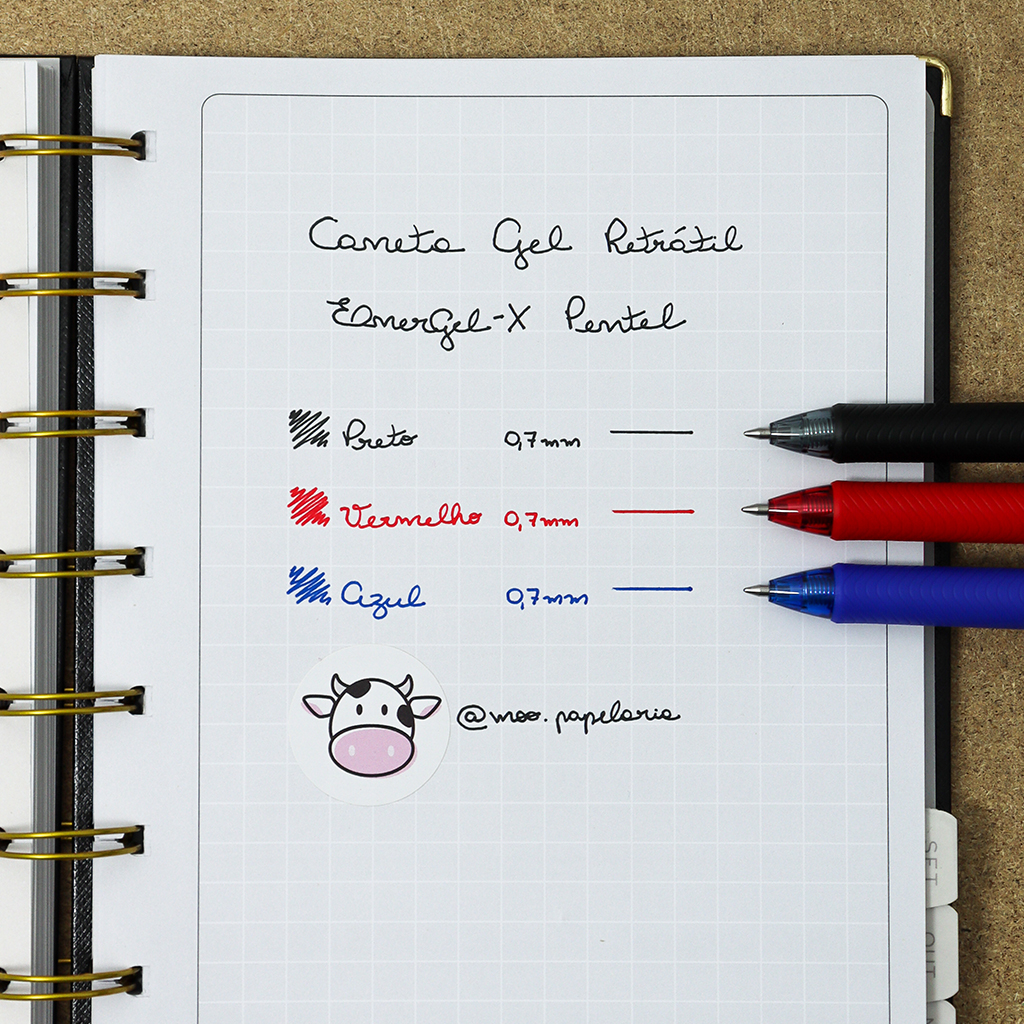 Caneta Gel Retrátil
EnerGel-X Pentel
Preto 0,7mm
Vermelho 0,7mm
Azul 0,7mm
@moo.papelaria
SET
OUT